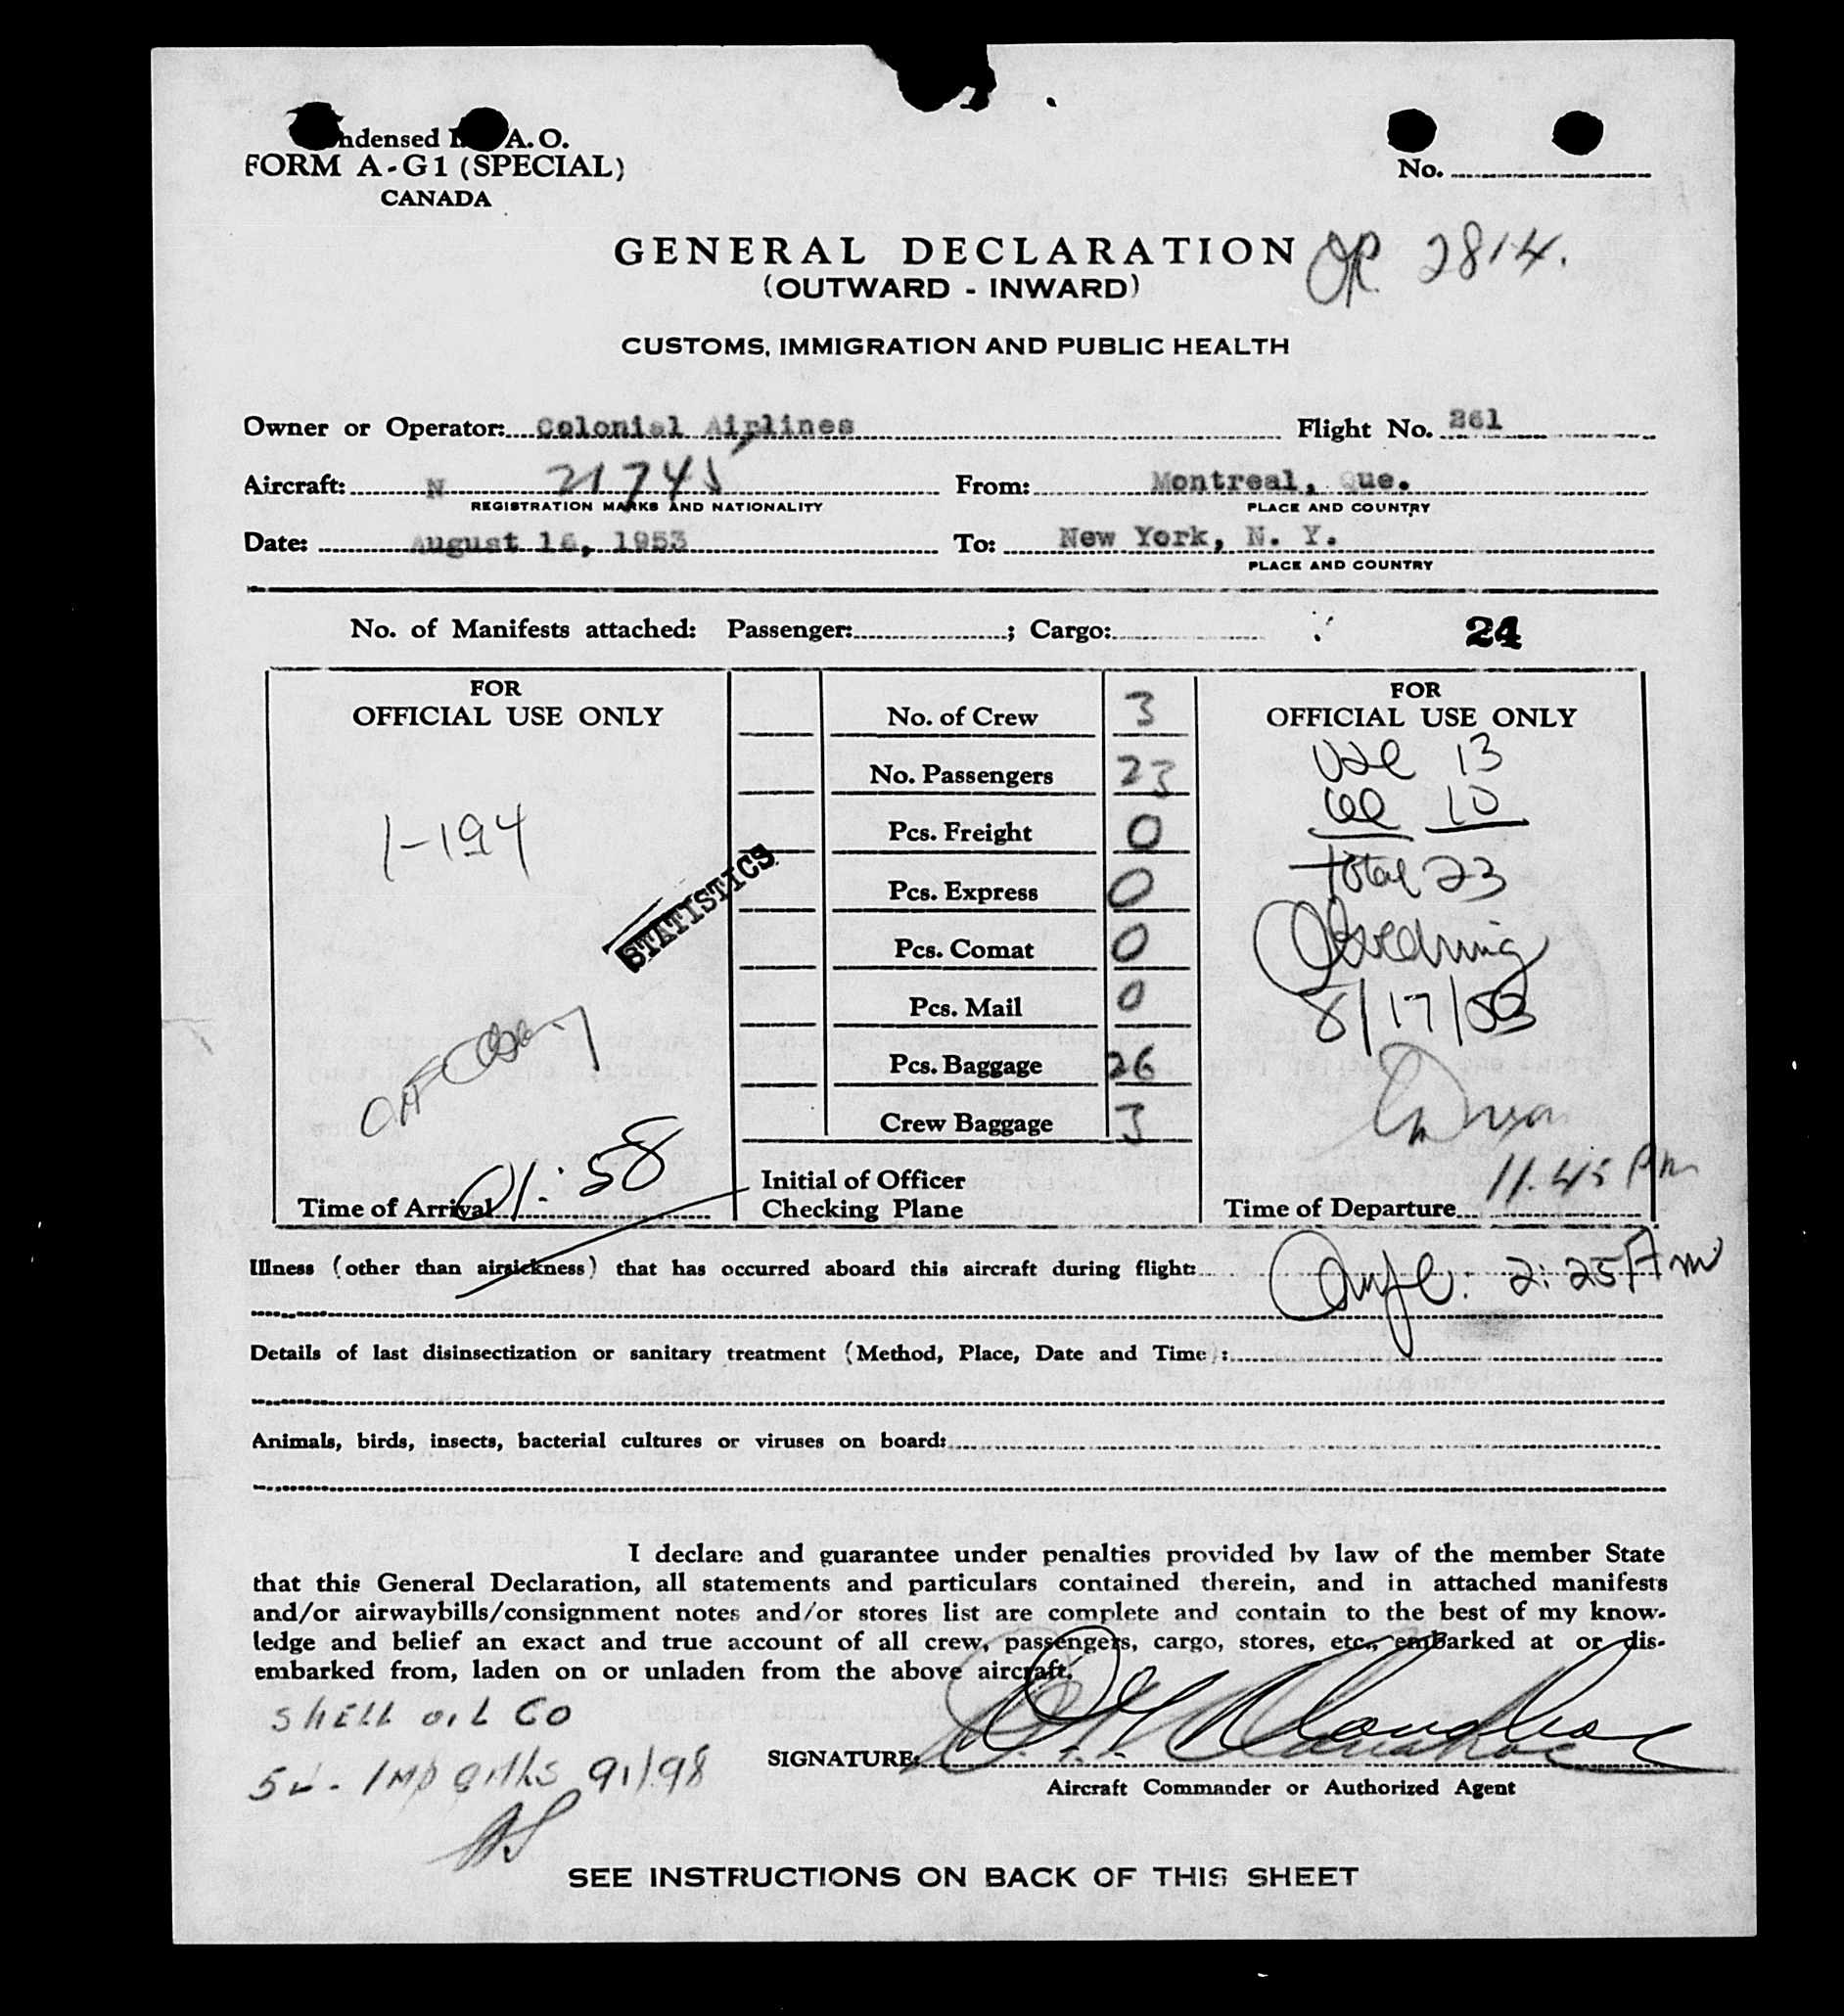 ndensed I A. O.
FORM A-G1 (SPECIAL)
CANADA
No.
GENERAL DECLARATION
(OUTWARD - INWARD)
2814.
CUSTOMS, IMMIGRATION AND PUBLIC HEALTH
Owner or Operator: Colonial Airlines Flight No. 261
Aircraft: N 21745 From: Montreal, Que.
REGISTRATION MARKS AND NATIONALITY PLACE AND COUNTRY
Date: August 16, 1953 To: New York, N. Y.
PLACE AND COUNTRY
No. of Manifests attached: Passenger: ; Cargo: 24
FOR
OFFICIAL USE ONLY
1-194
STATISTICS
Time of Arrival 01:58
No. of Crew 3
No. Passengers 23
Pcs. Freight 0
Pcs. Express 0
Pcs. Comat 0
Pcs. Mail 0
Pcs. Baggage 26
Crew Baggage 3
Initial of Officer
Checking Plane
FOR
OFFICIAL USE ONLY
13
10
Total 23
8/17/53
Time of Departure 11.45 Pm
Illness (other than airsickness) that has occurred aboard this aircraft during flight: 2:25 Am
Details of last disinsectization or sanitary treatment (Method, Place, Date and Time):
Animals, birds, insects, bacterial cultures or viruses on board:
I declare and guarantee under penalties provided by law of the member State
that this General Declaration, all statements and particulars contained therein, and in attached manifests
and/or airwaybills/consignment notes and/or stores list are complete and contain to the best of my know-
ledge and belief an exact and true account of all crew, passengers, cargo, stores, etc., embarked at or dis-
embarked from, laden on or unladen from the above aircraft.
SHELL OIL CO
91/98
SIGNATURE:
Aircraft Commander or Authorized Agent
SEE INSTRUCTIONS ON BACK OF THIS SHEET